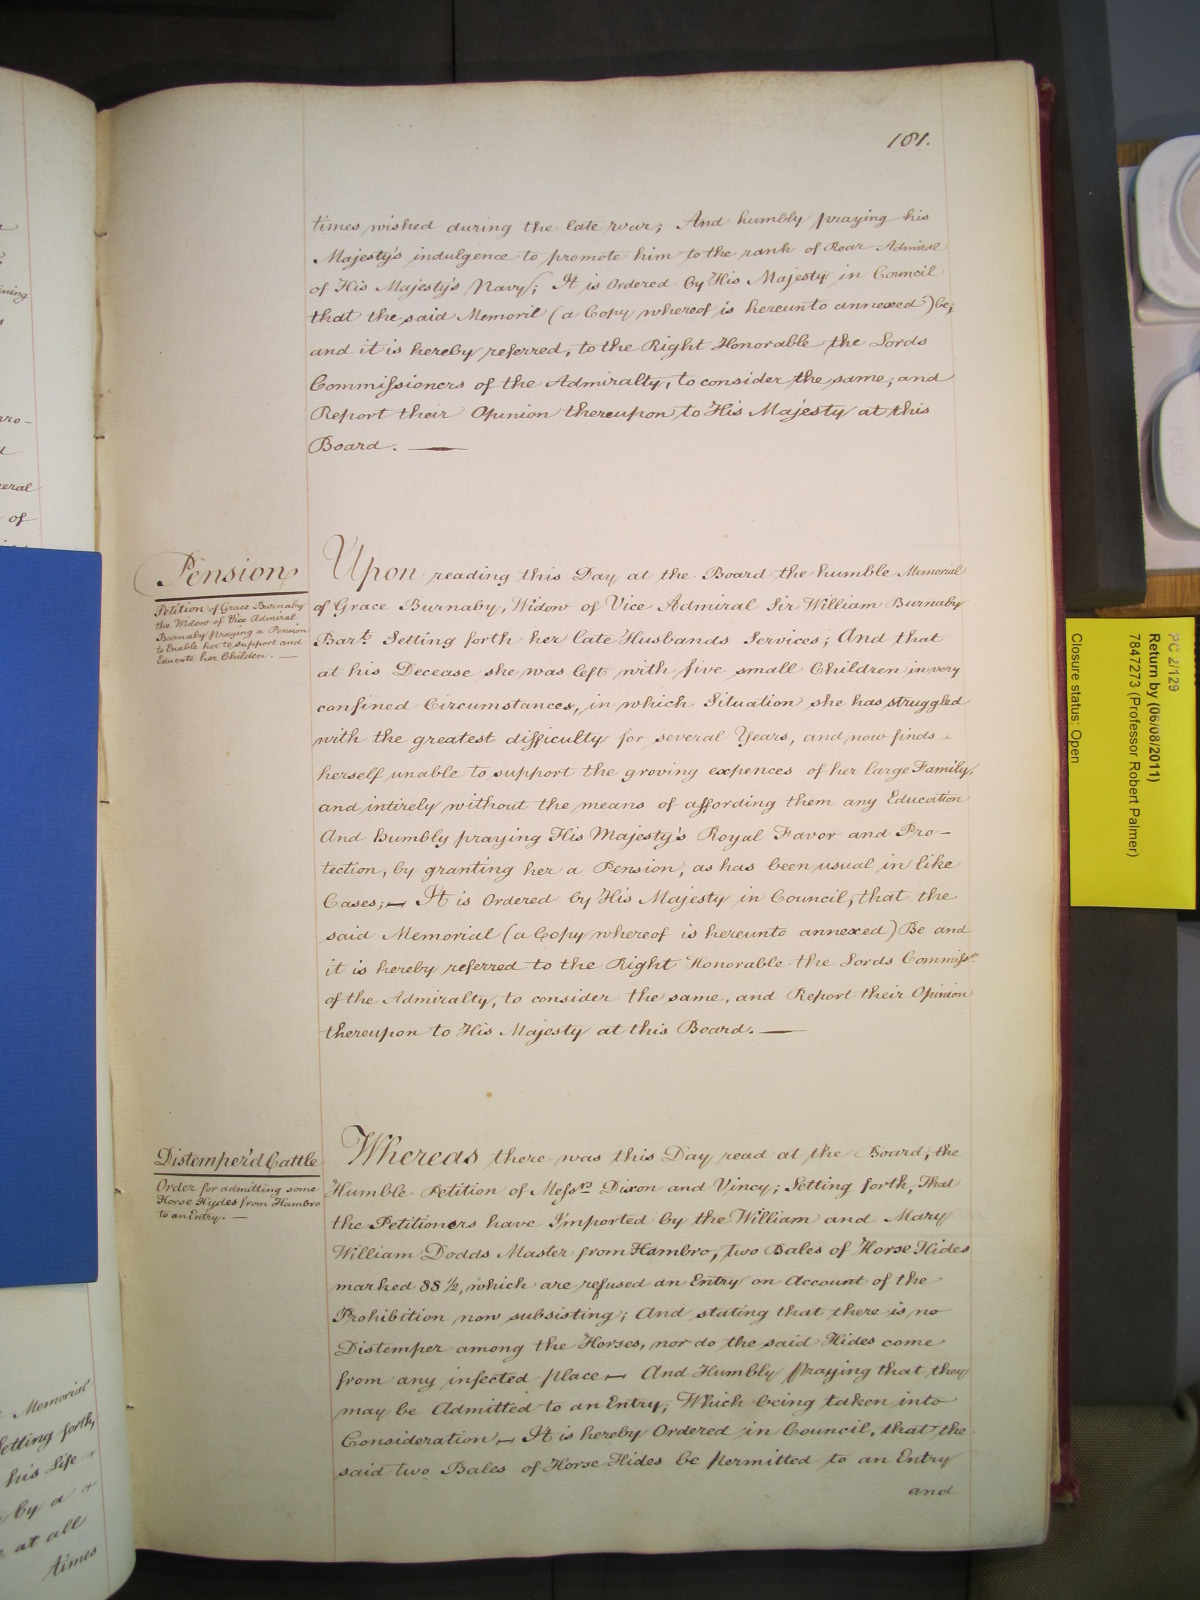 181.
times wished during the late war; And humbly praying his
Majesty's indulgence to promote him to the rank of Rear Admiral
of His Majesty's Navy; It is Ordered by His Majesty in Council
that the said Memoril (a Copy whereof is hereunto annexed) be,
and it is hereby referred, to the Right Honorable the Lords
Commissioners of the Admiralty, to consider the same, and
Report their Opinion thereupon to His Majesty at this
Board. —
Pension
Petition of Grace Burnaby
the Widow of Vice Admiral
Burnaby praying a Pension
to Enable her to support and
Educate her Children. —
Upon reading this Day at the Board the humble Memorial
of Grace Burnaby, Widow of Vice Admiral Sir William Burnaby
Bart. Setting forth her late Husbands Services; And that
at his Decease she was left with five small Children in very
confined Circumstances, in which Situation she has struggled
with the greatest difficulty for several Years, and now finds
herself unable to support the groving expences of her large Family,
and intirely without the means of affording them any Education
And humbly praying His Majesty's Royal Favor and Pro-
tection, by granting her a Pension, as has been usual in like
Cases; — It is Ordered by His Majesty in Council, that the
said Memorial (a Copy whereof is hereunto annexed) Be and
it is hereby referred to the Right Honorable the Lords Commissrs
of the Admiralty, to consider the same, and Report their Opinion
thereupon to His Majesty at this Board. —
Distemper'd Cattle
Order for admitting some
Horse Hydes from Hambro
to an Entry. —
Whereas there was this Day read at the Board, the
Humble Petition of Messrs Dixon and Vincy; Setting forth, That
the Petitioners have Imported by the William and Mary
William Dodds Master from Hambro, two Bales of Horse Hides
marked 88 ½, which are refused an Entry on Account of the
Prohibition now subsisting; And stating that there is no
Distemper among the Horses, nor do the said Hides come
from any infected place — And Humbly praying that they
may be Admitted to an Entry; Which being taken into
Consideration — It is hereby Ordered in Council, that the
said two Bales of Horse Hides be permitted to an Entry
and
Memorial
Setting forth,
his Life
by a
at all
times
eral
of
PC 2/129
Return by (06/08/2011)
7847273 (Professor Robert Palmer)
Closure status: Open